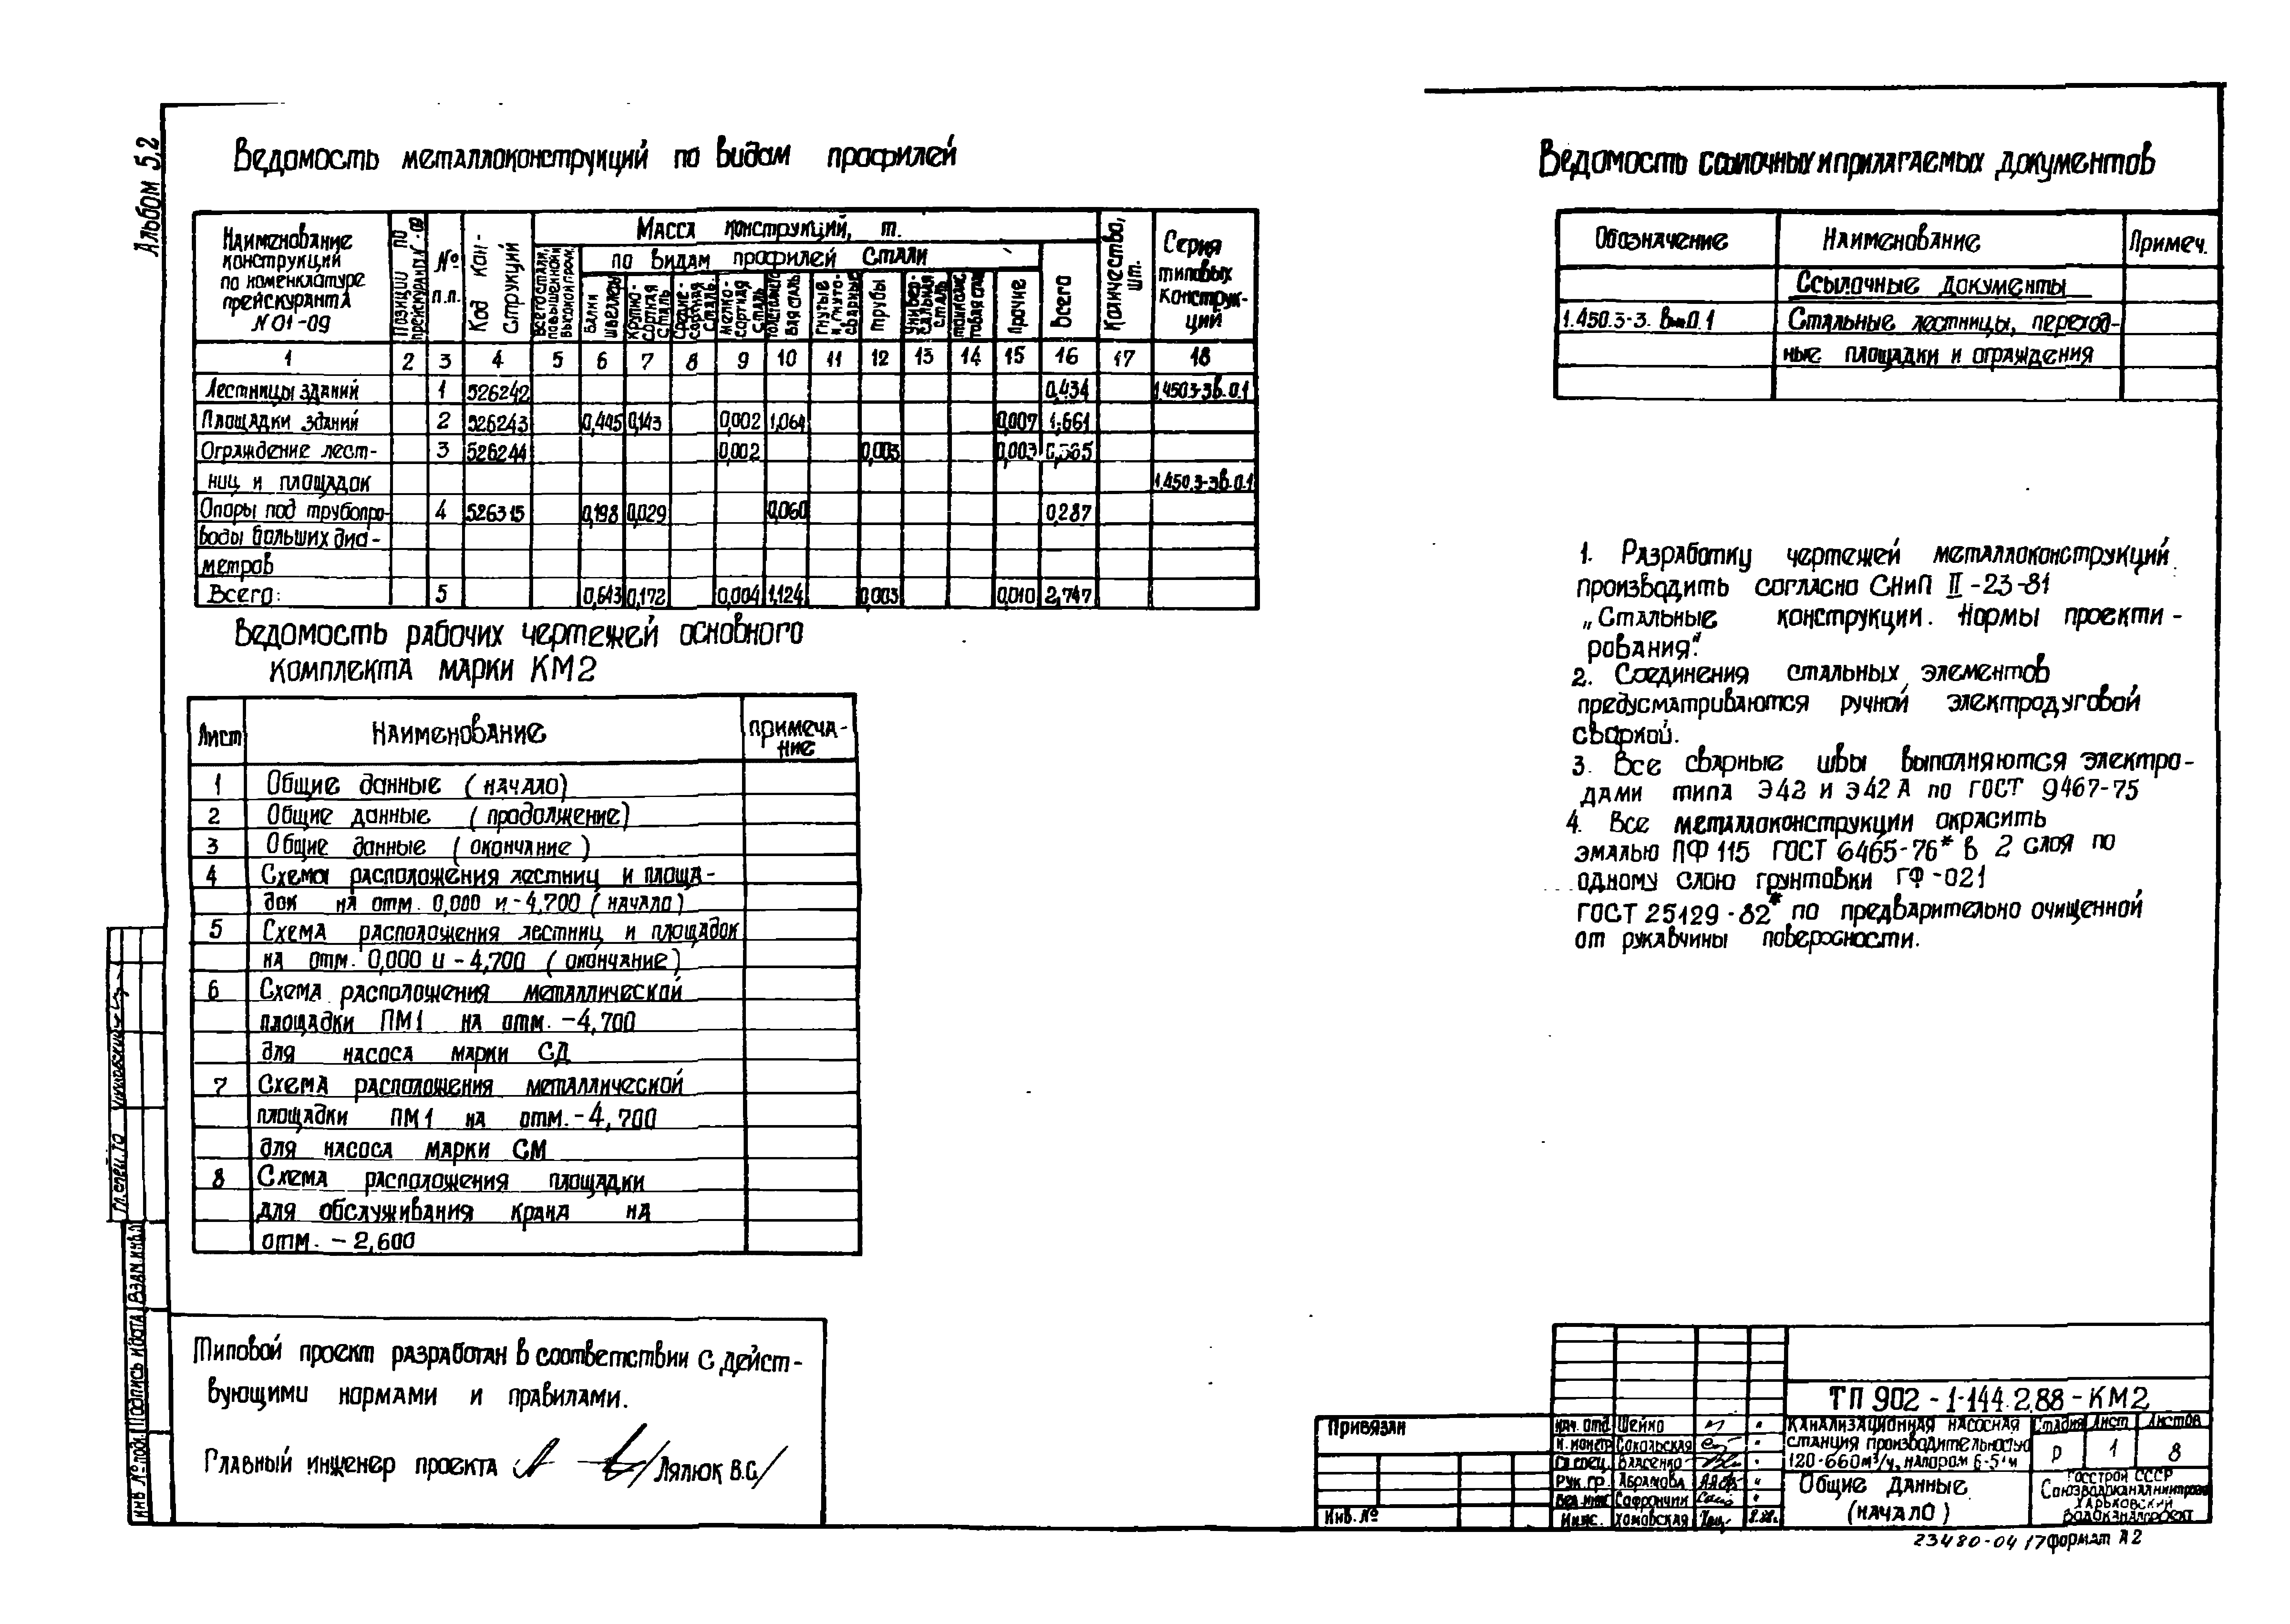 Альбом 5.2
Ведомость металлоконструкций по видам профилей
Наименование конструкций по номенклатуре прейскуранта N 01-09
Позиции по прейскуранту
№ п.п.
Код конструкций
Масса конструкций, т.
Всего стали повышенной и высокой прочн.
по видам профилей стали
Балки и швеллеры
Крупносортная сталь
Среднесортная сталь
Мелкосортная сталь
Толстолистовая сталь
Гнутые и гнутосварные
Трубы
Универсальная сталь
Прочие
Всего
Количество, шт.
Серия типовых конструкций
1 2 3 4 5 6 7 8 9 10 11 12 13 14 15 16 17 18
Лестницы зданий 1 526242 0,434 1.450.3-3в.0.1
Площадки зданий 2 526243 0,445 0,143 0,002 1,064 0,007 1,661
Ограждение лест- 3 526244 0,002 0,003 0,003 0,365
ниц и площадок 1.450.3-3в.0.1
Опоры под трубопро- 4 526315 0,198 0,029 0,060 0,287
воды больших диа-
метров
Всего: 5 0,643 0,172 0,004 1,124 0,003 0,010 2,747
Ведомость рабочих чертежей основного
комплекта марки КМ2
Лист Наименование Примеча-
ние
1 Общие данные (начало)
2 Общие данные (продолжение)
3 Общие данные (окончание)
4 Схема расположения лестниц и площа-
док на отм. 0,000 и -4,700 (начало)
5 Схема расположения лестниц и площадок
на отм. 0,000 и -4,700 (окончание)
6 Схема расположения металлической
площадки ПМ1 на отм. -4,700
для насоса марки СД
7 Схема расположения металлической
площадки ПМ1 на отм. -4,700
для насоса марки СМ
8 Схема расположения площадки
для обслуживания крана на
отм. -2,600
Типовой проект разработан в соответствии с дейст-
вующими нормами и правилами.
Главный инженер проекта /Лялюк В.С./
Ведомость ссылочных и прилагаемых документов
Обозначение Наименование Примеч.
Ссылочные документы
1.450.3-3. Вып.0.1 Стальные лестницы, переход-
ные площадки и ограждения
1. Разработку чертежей металлоконструкций
производить согласно СНиП II-23-81
„Стальные конструкции. Нормы проекти-
рования".
2. Соединения стальных элементов
предусматриваются ручной электродуговой
сваркой.
3. Все сварные швы выполняются электро-
дами типа Э42 и Э42А по ГОСТ 9467-75
4. Все металлоконструкции окрасить
эмалью ПФ 115 ГОСТ 6465-76* в 2 слоя по
одному слою грунтовки ГФ-021
ГОСТ 25129-82* по предварительно очищенной
от ржавчины поверхности.
Гл. спец. ТО
Инв. № подл. Подпись и дата Взам. инв. №
Привязан
Инв. №
Нач. отд. Шейко
Н. контр. Сокольская
Гл. спец. Власенко
Рук. гр. Абрамова
Вед. инж. Сафрончик
Инж. Хомовская
ТП 902-1-144.2.88-КМ2
Канализационная насосная
станция производительностью
120-660м³/ч, напором
Стадия Лист Листов
Р 1 8
Общие данные
(начало)
Госстрой СССР
Союзводоканалниипроект
Харьковский
Водоканалпроект
23480-04 17 Формат А2